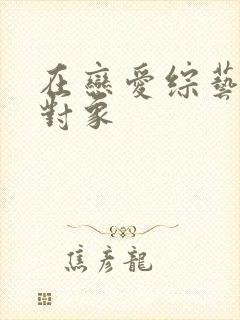 在戀愛綜藝
對象
焦彥龍